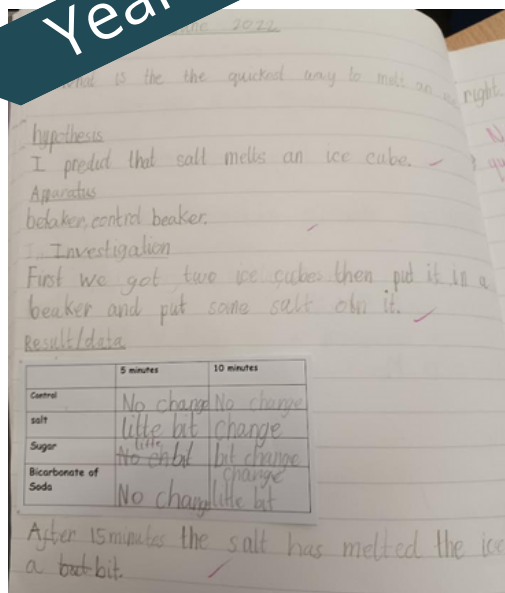 Year
2022
is the the quickest way to melt an
right
hypothesis
I predict that salt melts an ice cube.
Apparatus
beaker, control beaker.
Investigation
First we got two ice cubes then put it in a
beaker and put some salt on it.
Result/data
5 minutes 10 minutes
Control No change No change
salt litte bit change
Sugar little bit bit change
Bicarbonate of Soda No change change little bit
After 15 minutes the salt has melted the ice
a bit.